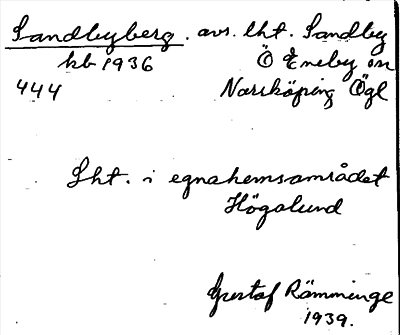 Sandbyberg. avs. lht. Sandby
kb 1936 Ö Eneby sn
444 Norrköping Ögl
Lht. i egnahemsområdet
Högalund
Gustaf Rämminge
1939.